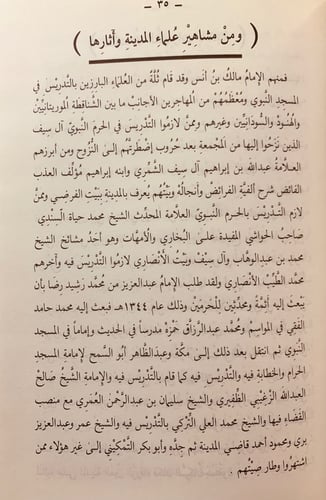 — ٣٥ —
( ومن مشاهير علماء المدينة وآثارها )
فمنهم الإمام مالك بن أنس وقد قام ثلة من العلماء البارزين بالتدريس في
المسجد النبوي ومعظمهم من المهاجرين الأجانب ما بين الشناقطة الموريتانيين
والهنود والسودانيين وغيرهم وممن لازموا التدريس في الحرم النبوي آل سيف
الذين نزحوا إليها من المجمعة بعد حروب إضطرتهم إلى النزوح ومن أبرزهم
العلامة عبدالله بن إبراهيم آل سيف الشمري وابنه إبراهيم مؤلف العذب
الفائض شرح ألفية الفرائض وأنجاله وبيتهم يعرف بالمدينة ببيت الفرضي وممن
لازم التدريس بالحرم النبوي العلامة المحدث الشيخ محمد حياة السندي
صاحب الحواشي المفيدة على البخاري والأمهات وهو أحد مشائخ الشيخ
محمد بن عبدالوهاب وآل سيف وبيت الأنصاري لازموا التدريس فيه وآخرهم
محمد الطيب الأنصاري ولقد طلب الإمام عبدالعزيز من محمد رشيد رضا بأن
يبعث إليه أئمة ومحدثين للحرمين وذلك عام ١٣٤٤هـ فبعث إليه محمد حامد
الفقي في المواسم ومحمد عبدالرزاق حمزه مدرساً في الحديث وإماماً في المسجد
النبوي ثم انتقل بعد ذلك إلى مكة وعبدالظاهر أبو السمح لإمامة المسجد
الحرام والخطابة فيه والتدريس فيه كما قام بالتدريس فيه والإمامة الشيخ صالح
العبدالله الزغيبي الظفيري والشيخ سليمان بن عبدالرحمن العمري مع منصب
القضاء فيها والشيخ محمد العلي التركي بالتدريس فيه والشيخ عمر وعبدالعزيز
بري ومحمود أحمد قاضي المدينة ثم جده وأبو بكر التمكيني إلى غير هؤلاء ممن
اشتهروا وطار صيتهم .